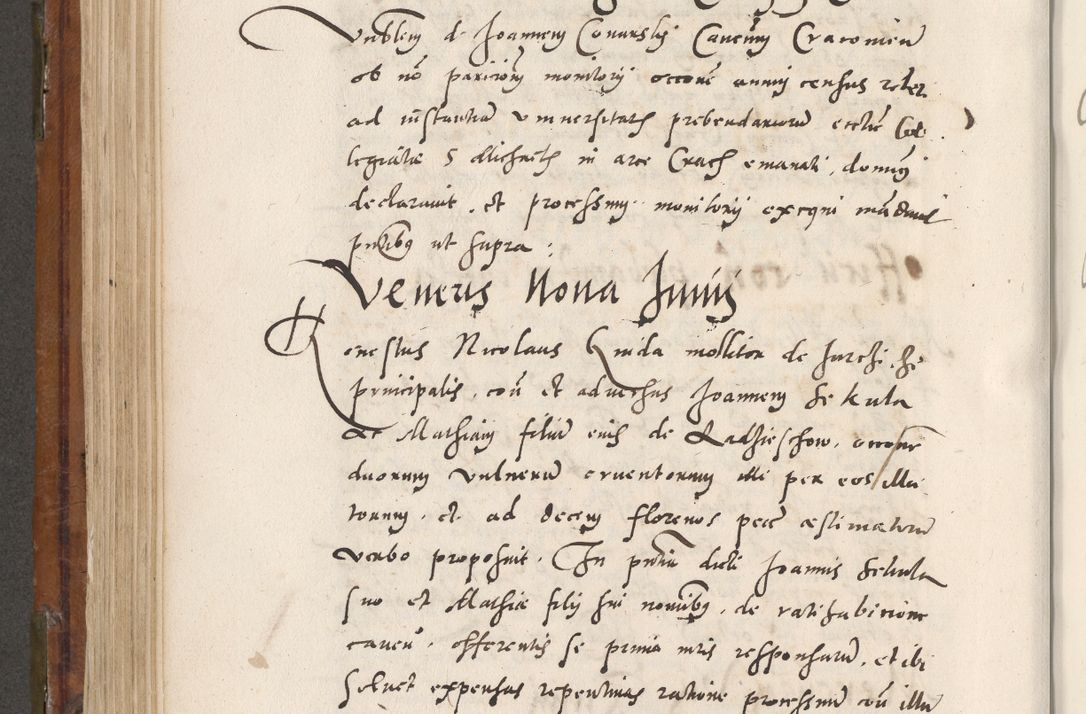 Vnblem de Joannem Conarsky Cancum Cracovien
ob nō paricionem monitorij occone annui census retet
ad instantiā vniversitatis prebendariorū ecclie Col
legiatae S Michaelis in arce Crac emanati, domus
declaravit, et processum monitorij exequi mādavit
pntibus ut supra:
Veneris Nona Junij
Honestus Nicolaus Gnida mollitor de
principalis, coū et adversus Joannem Sekula
et Mathiam filiū eius de Radzieschow, occone
duorum vulnerū cruentorum illi per eos illa
torum, et ad decem florenos pecū aestimatorū
verbo proposuit. In pntia dicti Joannis Sekula
suo et Mathiae filij sui nominibus, de ratihabitione
caveñ, offerentis se primis iuris responsurū, et ibi
solvet expensas repentinas ratione processuū coū illū